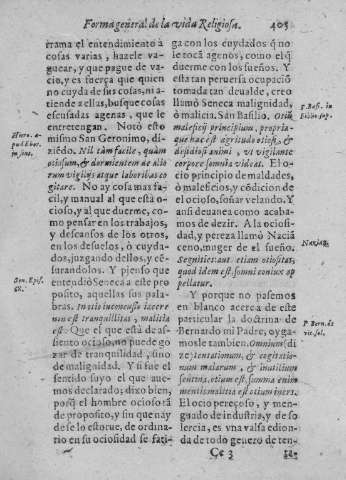 Forma general de la vida Religiosa. 405
rrama el entendimiẽto a
cosas varias, hazele va-
guear, y que pague de va-
cio, y es fuerça que quien
no cuyda de sus cosas, ni a-
tiende a ellas, busque cosas
escusadas agenas, que le
entretengan. Notò esto
mismo San Geronimo, di-
ziẽdo. Nil tàm facile, quàm
otiosum, & dormientem de alio
rum vigilijs atque laboribus co
gitare. No ay cosa mas fa-
cil, y manual al que està o-
cioso, y al que duerme, co-
mo pensar en los trabajos,
y descansos de los otros,
en los desuelos, ò cuyda-
dos, juzgando dellos, y cẽ-
surandolos. Y piẽso que
entendiò Seneca a este pro
posito, aquellas sus pala-
bras. In otio inconcusse iacere
non est tranquillitas, malitia
est: Que el que està de as-
siento ocioso, no puede go
zar de tranquilidad, sino
de malignidad. Y si fue el
sentido suyo el que aue-
mos declarado; dixo bien,
porq̃ el hombre ocioso
de proposito, y sin que nay
de se lo estorue, de ordina-
rio en su ociosidad se fati-
Hiero. a-
pud Eber.
in sent.
Sen. Epis.
ga con los cuydados q̃ no
le tocã agenos, como el q̃
duerme con los sueños. Y
esta tan peruersa ocupaciõ
tomada tan deualde, creo
llamò Seneca malignidad,
ò malicia. San Basilio. Otiũ
maleficij principium, propria-
que hæc est ægritudo otiosi, &
dispidiosi animi, vt vigilante
corpore somnia videat. El o-
cio principio de maldades,
ò maleficios, y cõdicion de
el ocioso, soñar velando. Y
ansi deuanea como acaba-
mos de dezir. A la ociosi-
dad, y pereza llamò Naciã
ceno, muger de el sueño.
Segnities aut etiam otiositas,
quod idem est, somni coniux ap
pellatur.
Y porque no passemos
en blanco acerca de este
particular la doctrina de
Bernardo mi Padre, oyga-
mosle tambien. Omnium (di
ze) tentationum, & cogitatio-
num malarum, & inutilium
sentina, otium est, summa enim
mentis malitia est otium iners.
El ocio pereçoso, y men-
guado de industria, y de so
lercia, es vna valsa edion-
da de todo genero de ten-
Cc 3
Nacian.
P. Bern. de
vit. sol.